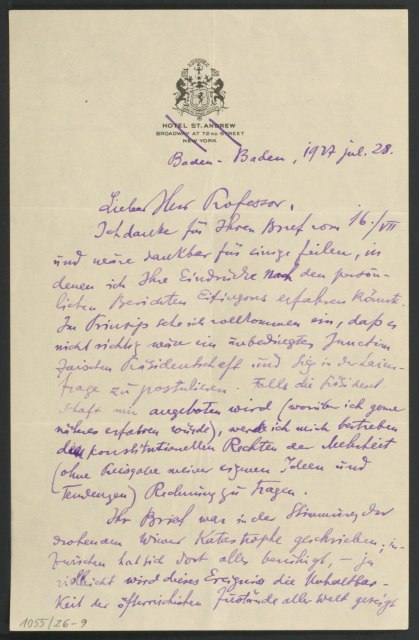 HOTEL ST. ANDREW
BROADWAY AT 72ND STREET
NEW YORK
Baden-Baden, 1927 jul. 28.
Lieber Herr Professor,
Ich danke für Ihren Brief vom 16./VII
und wäre dankbar für einige Zeilen, in
denen ich Ihre Eindrücke nach den persön-
lichen Berichten Eitingons erfahren könnte.
Im Prinzip sehe ich vollkommen ein, daß es
nicht richtig wäre ein unbedingtes Junctim
zwischen Präsidentschaft und Sieg in der Laien-
frage zu postulieren. Falls die Präsident
schaft mir angeboten wird (worüber ich gerne
näheres erfahren würde), werde ich mich bestreben
den konstitutionellen Rechten der Mehrheit
(ohne Preisgabe meiner eigenen Ideen und
Tendenzen) Rechnung zu tragen.
Ihr Brief war in der Stimmung der
drohenden Wiener Katastrophe geschrieben; in-
zwischen hat sich dort alles beruhigt, – ja
vielleicht wird dieses Ereignis die Unhaltbar-
keit der österreichischen Zustände aller Welt gezeigt
1055/26-9